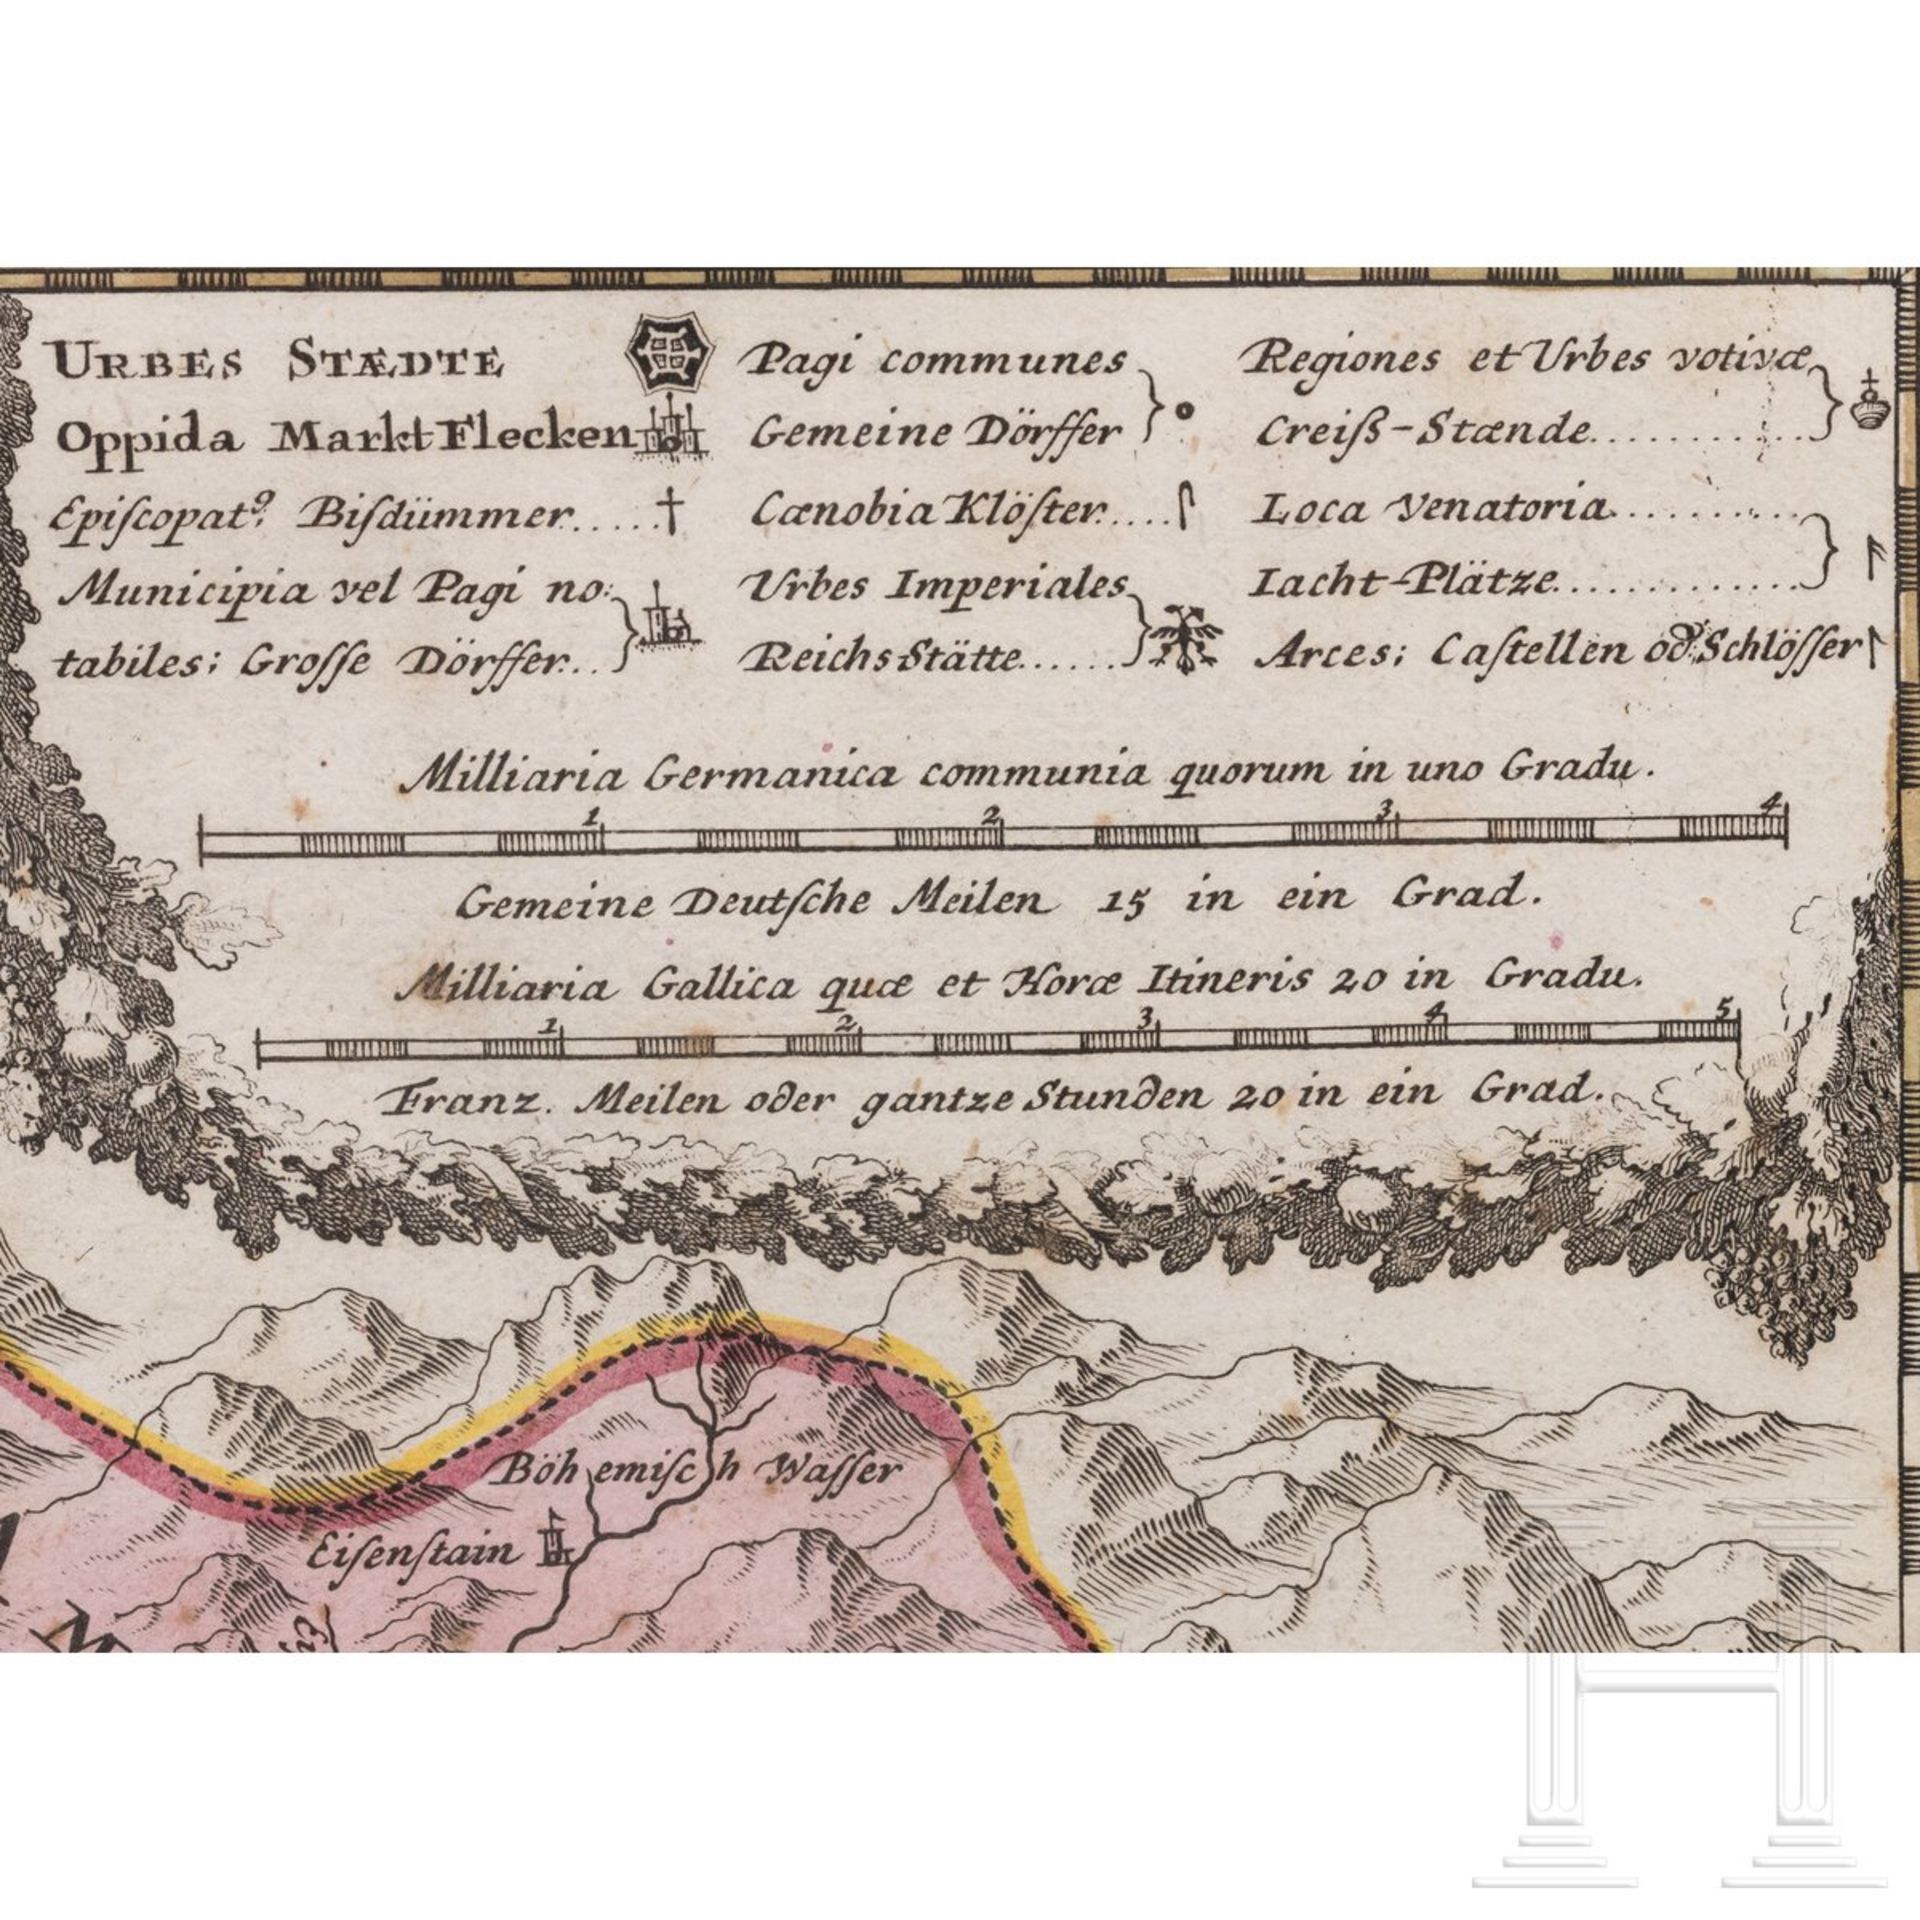 URBES STÆDTE
Oppida Markt Flecken
Epiſcopat9. Biſdümmer.....
Municipia vel Pagi no:
tabiles; Groſſe Dörffer...
Pagi communes
Gemeine Dörffer
Cænobia Klöſter.....
Urbes Imperiales
Reichs Stätte......
Regiones et Urbes votivæ
Creiß-Stænde............
Loca Venatoria..........
Iacht-Plätze.............
Arces; Caſtellen od. Schlöſſer
Milliaria Germanica communia quorum in uno Gradu.
1 2 3 4
Gemeine Deutſche Meilen 15 in ein Grad.
Milliaria Gallica quæ et Horæ Itineris 20 in Gradu.
1 2 3 4 5
Franz. Meilen oder gantze Stunden 20 in ein Grad.
Böhemiſch Waſſer
Eiſenſtain
M
H